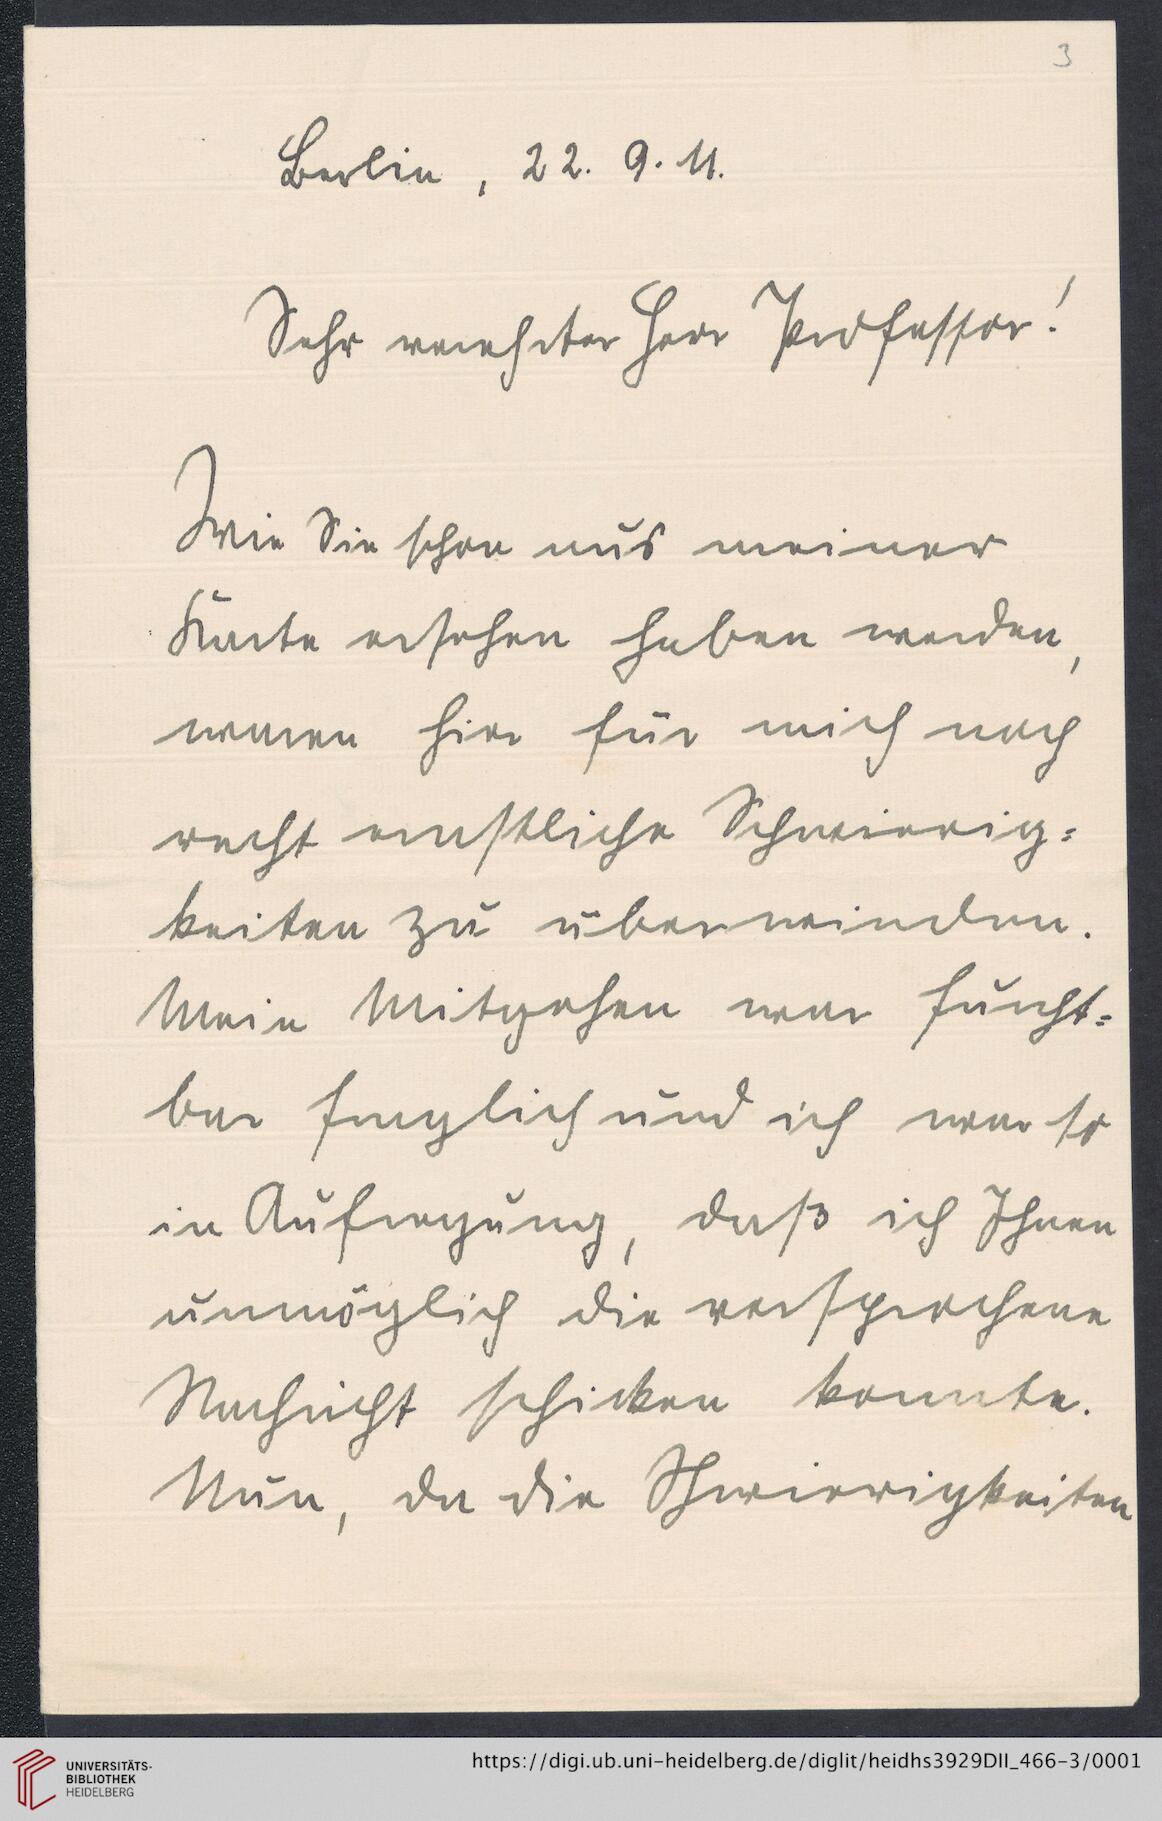 3
Berlin, 22. 9. 11.
Sehr verehrter Herr Professor!
Wie Sie schon aus meiner
Karte ersehen haben werden,
waren hier für mich noch
recht ernstliche Schwierig=
keiten zu überwinden.
Mein Mitgehen war furcht=
bar fraglich und ich war so
in Aufregung, daß ich Ihnen
unmöglich die versprochene
Nachricht schicken konnte.
Nun, da die Schwierigkeiten
UNIVERSITÄTS-
BIBLIOTHEK
HEIDELBERG
https://digi.ub.uni-heidelberg.de/diglit/heidhs3929DII_466-3/0001